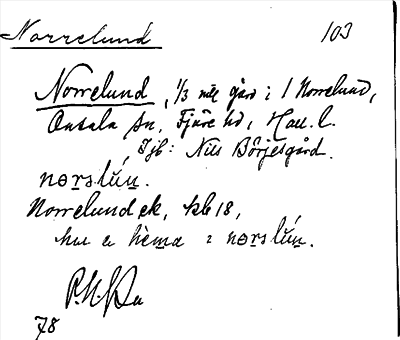 Norrelund 103
Norrelund, 1/3 mtl gård i 1 Norrelund,
Onsala sn, Fjäre hd, Hall. l.
Tjb: Nils Börjesgård.
nørslún.
Norrelund ek, kbl 18,
hu e hèma i nørslún.
78